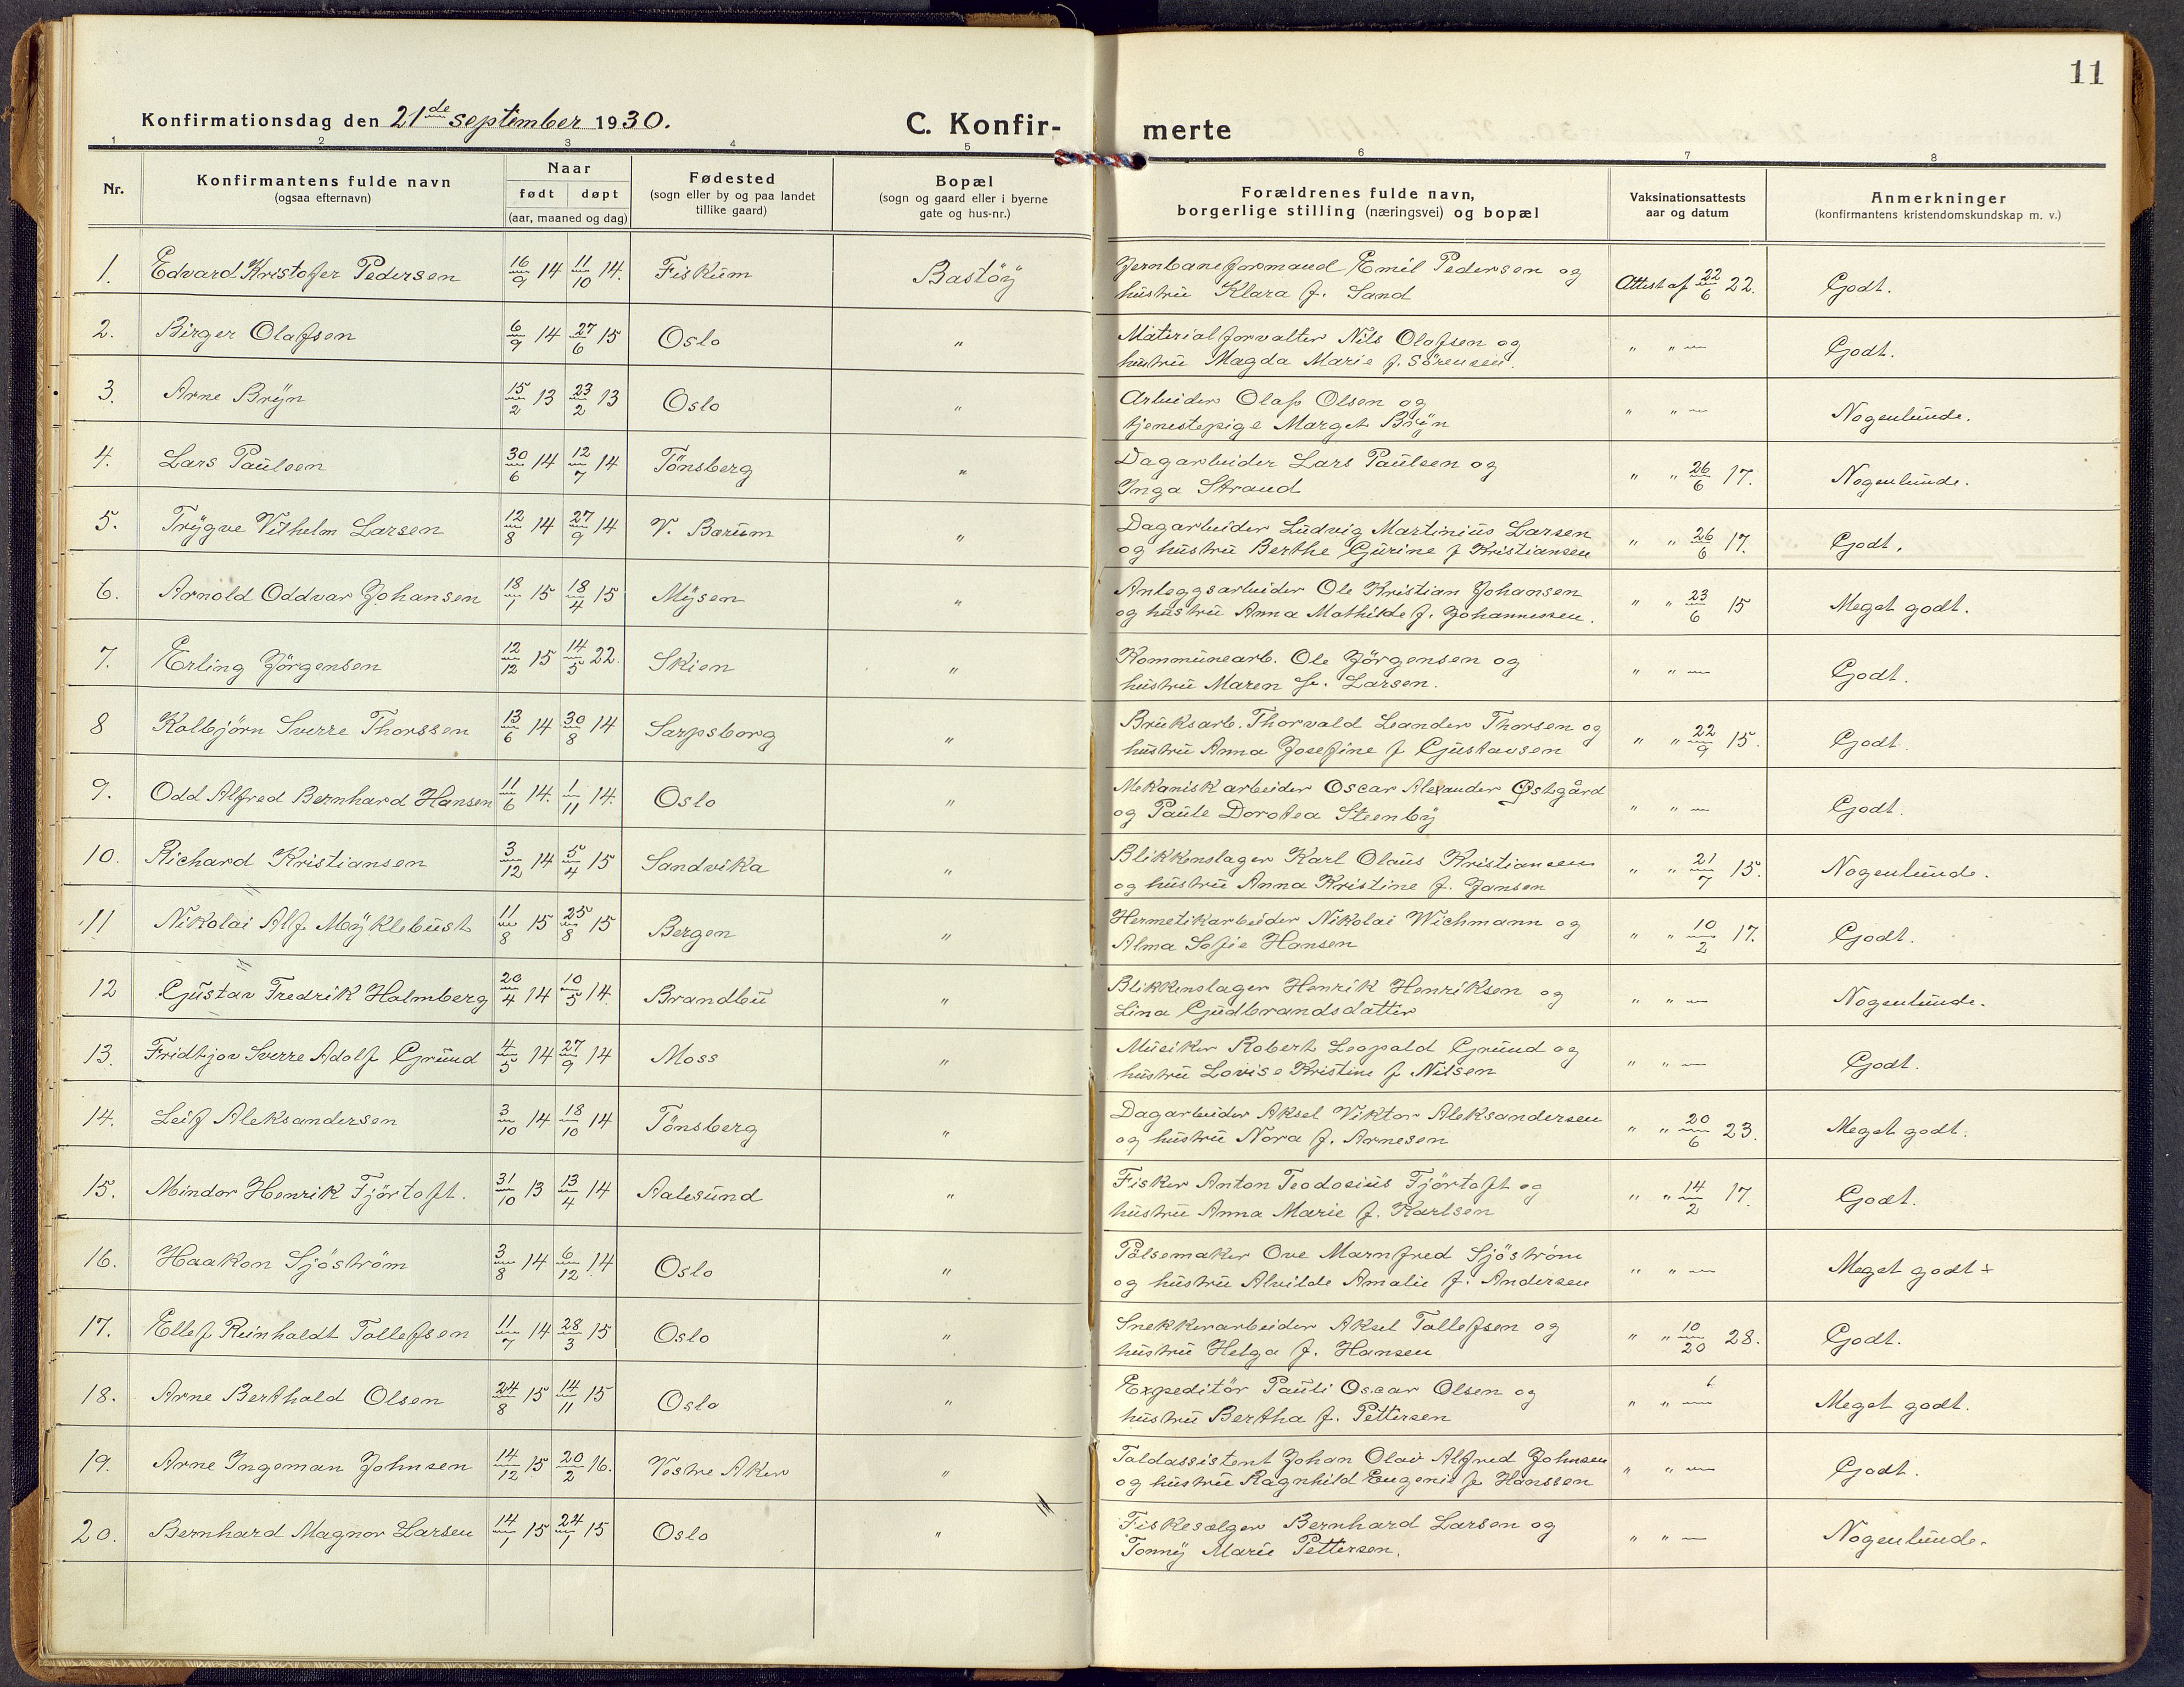 11
Konfirmationsdag den 21de september 1930.
C. Konfir-
merte
1 2 3 4 5 6 7 8
Nr.
Konfirmantens fulde navn
(ogsaa efternavn)
Naar
født døpt
(aar, maaned og dag)
Fødested
(sogn eller by og paa landet
tillike gaard)
Bopæl
(sogn og gaard eller i byerne
gate og hus-nr.)
Forældrenes fulde navn,
borgerlige stilling (næringsvei) og bopæl
Vaksinationsattests
aar og datum
Anmerkninger
(konfirmantens kristendomskundskap m. v.)
1. Edvard Kristofer Pedersen 16/9 14 11/10 14. Fiskum Bastöy Jernbaneformand Emil Pedersen og
hustru Klara f. Sand Attest af 22/6 22. Godt.
2. Birger Olafsen 6/9 14 27/6 15 Oslo " Materialforvalter Nils Olafsen og
hustru Magda Marie f. Sörensen. " " — Godt.
3. Arne Bryn 15/2 13 23/2 13 Oslo " Arbeider Olaf Olsen og
tjenestepige Marget Bryn " " — Nogenlunde.
4. Lars Paulsen 30/6 14 12/7 14 Tönsberg " Dagarbeider Lars Paulsen og
Inga Strand " " 26/6 17. Nogenlunde.
5. Trygve Vilhelm Larsen 12/8 14 27/9 14 V. Bærum " Dagarbeider Ludvig Martinius Larsen
og hustru Berthe Gurine f Kristiansen " " 26/6 17. Godt.
6. Arnold Oddvar Johansen 18/1 15 18/4 15 Mysen " Anleggsarbeider Ole Kristian Johansen
og hustru Anna Mathilde f. Johannessen. " " 23/6 15 Meget godt.
7. Erling Jörgensen 12/12 15 14/5 22. Skien " Kommunearb. Ole Jörgensen og
hustru Maren f. Larsen. " " — Godt.
8 Kolbjörn Sverre Thorssen 13/6 14 30/8 14 Sarpsborg " Bruksarb. Thorvald Leander Thorsen og
hustru Anna Josefine f Gustavsen " " 22/9 15. Godt.
9. Odd Alfred Bernhard Hansen 11/6 14. 1/11 14. Oslo " Mekanisk arbeider Oscar Alexander Østgård
og Paule Dorotea Steenby " " — Godt.
10. Richard Kristiansen 3/12 14 5/4 15 Sandvika " Blikkenslager Karl Olaus Kristiansen
og hustru Anna Kristine f. Jansen " " 21/7 15. Nogenlunde.
11 Nikolai Alf Myklebust 11/8 15 25/8 15 Bergen " Hermetikarbeider Nikolai Wichmann og
Alma Sofie Hansen " " 10/2 17. Godt.
12 Gustav Fredrik Holmberg 20/4 14 10/5 14. Brandbu " Blikkenslager Henrik Henriksen og
Lina Gudbrandsdatter " " — Nogenlunde.
13. Fridtjov Sverre Adolf Grund 4/5 14 27/9 14 Moss " Musiker Robert Leopold Grund og
hustru Lovise Kristine f Nilsen " " — Godt.
14. Leif Aleksandersen 3/10 14 18/10 14 Tönsberg " Dagarbeider Aksel Viktor Aleksandersen
og hustru Nora f. Arnesen " " 20/6 23. Meget godt.
15. Mindor Henrik Fjörtoft. 31/10 13 13/4 14 Aalesund " Fisker Anton Teodosius Fjörtoft og
hustru Anna Marie f. Karlsen " " 14/2 17. Godt.
16. Haakon Sjöström 3/8 14 6/12 14 Oslo " Pölsemaker Ove Marnfred Sjöström
og hustru Alvilde Amalie f. Andersen " " — Meget godt +
17. Ellef Reinholdt Tollefsen 11/7 14 28/3 15 Oslo " Snekkerarbeider Aksel Tollefsen og
hustru Helga f. Hansen " " 10/20 28. Godt.
18. Arne Berthold Olsen 24/8 15 14/11 15 Oslo " Expeditör Pauli Oscar Olsen og
hustru Bertha f. Pettersen " " — Meget godt.
19. Arne Ingeman Johnsen 14/12 15 20/2 16. Vestre Aker " Toldassistent Johan Olav Alfred Johnsen
og hustru Ragnhild Eugenie f Hanssen " " — Godt.
20. Bernhard Magnor Larsen 14/1 15 24/1 15 Oslo " Fiskesælger Bernhard Larsen og
Tonny Marie Pettersen. " " — Nogenlunde.